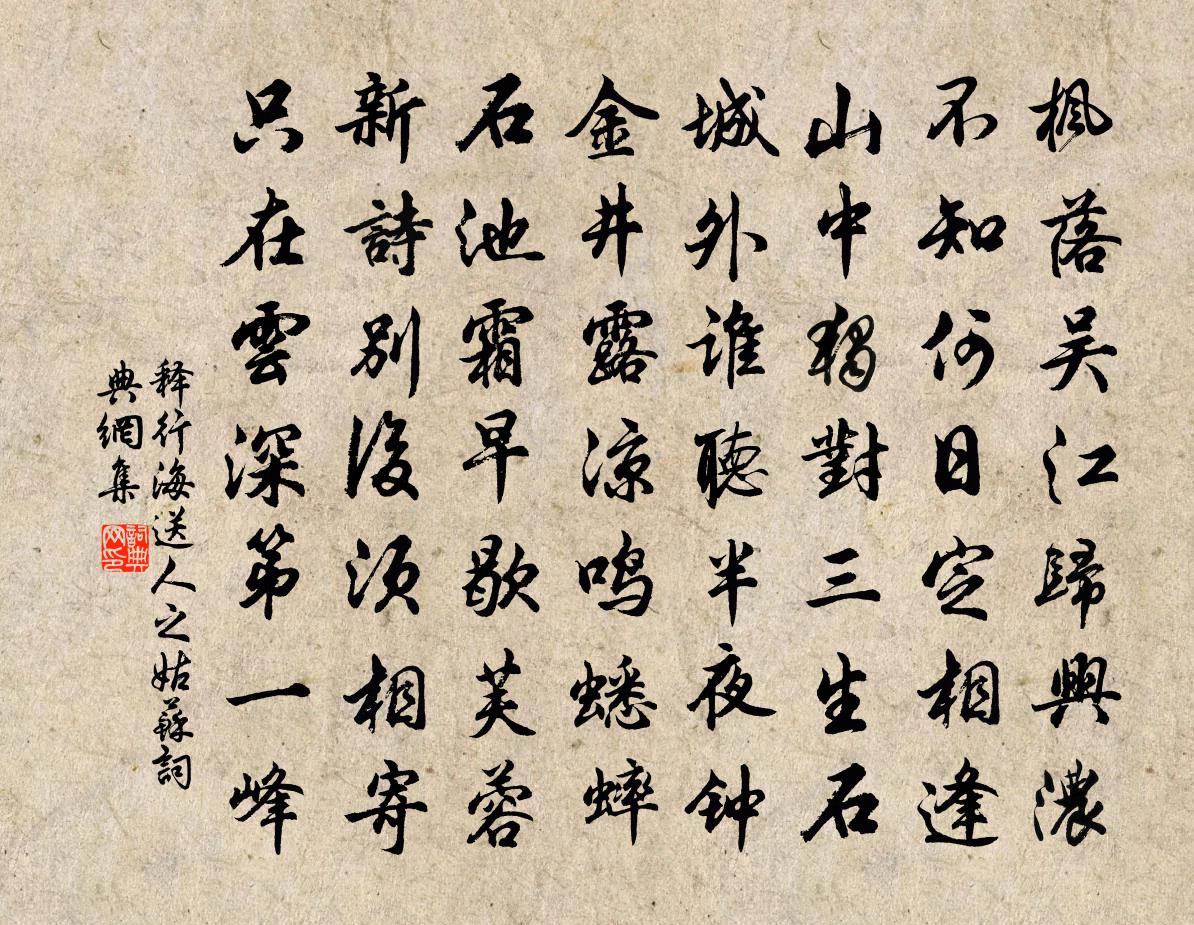 枫落吴江歸興濃
不知何日定相逢
山中獨對三生石
城外誰聽半夜钟
金井露凉鸣蟋蟀
石池霜早歇芙蓉
新詩別後须相寄
只在雲深第一峰
释行海送人之姑蘇詞
典網集
詞典
网印